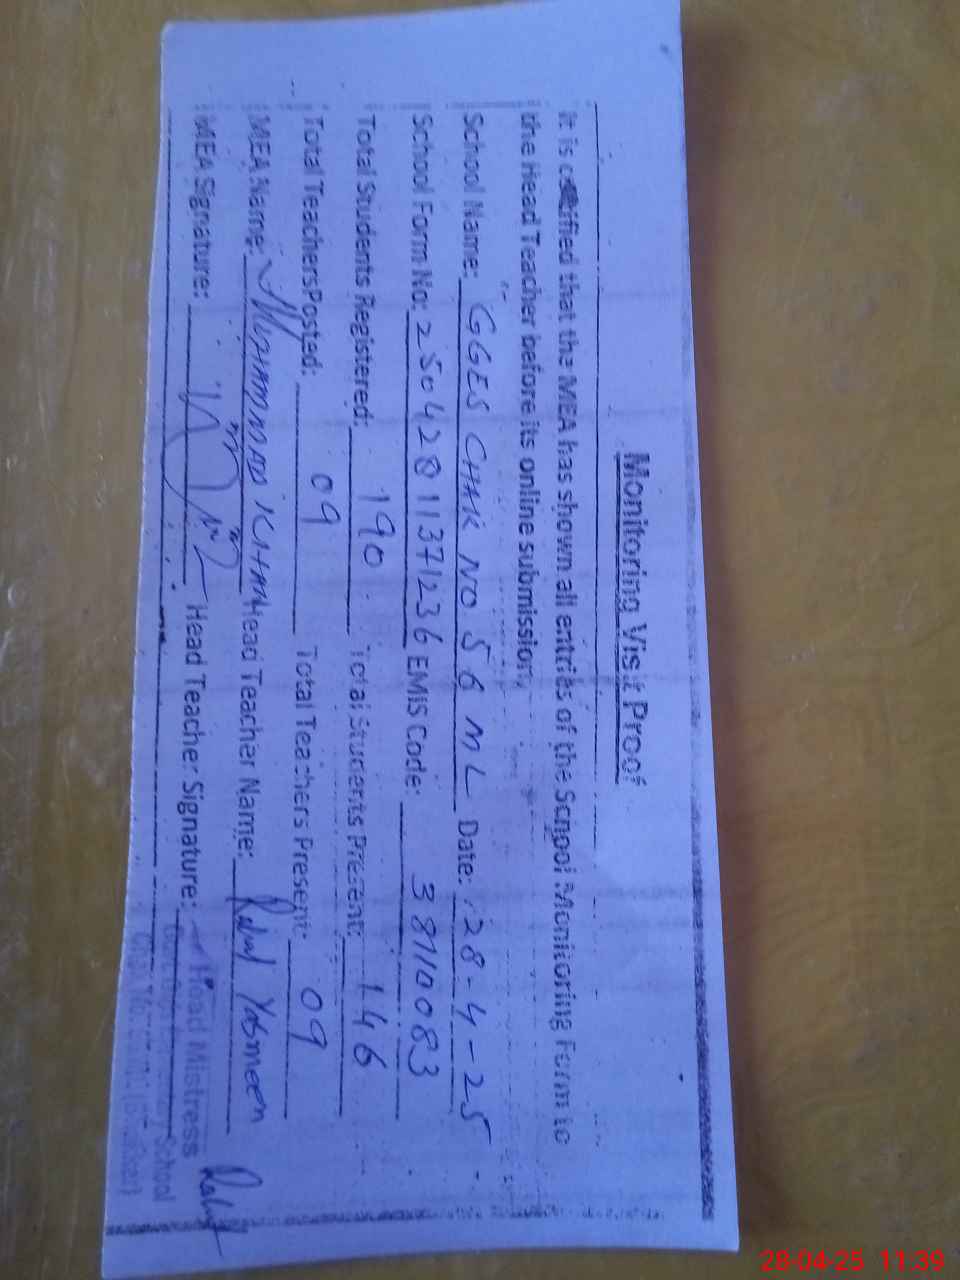 Monitoring Visit Proof
It is certified that the MEA has shown all entries of the School Monitoring Form to
the Head Teacher before its online submission.
School Name: GGES CHAK NO 56 ML Date: 28-4-25
School Form No: 25042811371236 EMIS Code: 38110083
Total Students Registered: 190 Total Students Present: 146
Total Teachers Posted: 09 Total Teachers Present: 09
MEA Name: MUHAMMAD KHAN Head Teacher Name: Yasmeen
MEA Signature: Head Teacher Signature:
Head Mistress
School
28-04-25 11:39